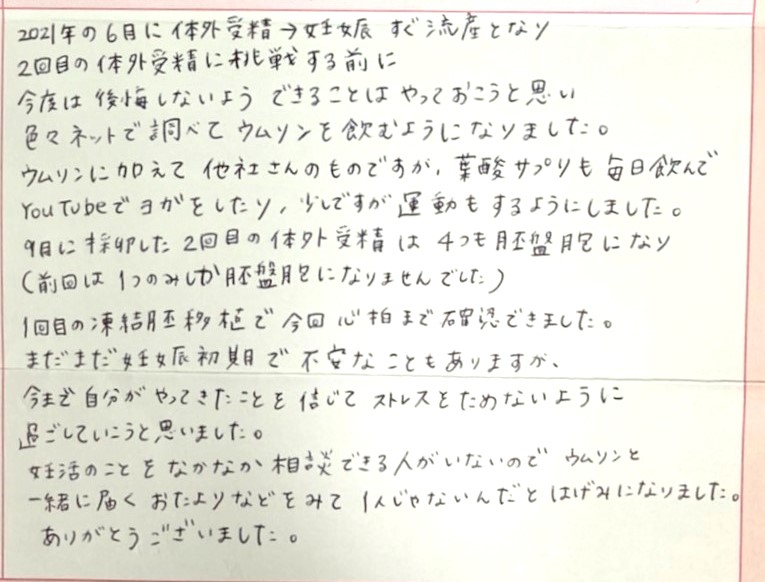 2021年の6月に体外受精→妊娠 すぐ流産となり
2回目の体外受精に挑戦する前に
今度は後悔しないよう できることは やっておこうと思い
色々ネットで調べて ウムリンを飲むようになりました。
ウムリンに加えて 他社さんのものですが、葉酸サプリも毎日飲んで
YouTubeでヨガをしたり、少しですが運動もするようにしました。
9月に採卵した2回目の体外受精は 4つも胚盤胞になり
(前回は1つのみしか胚盤胞になりませんでした)
1回目の凍結胚移植で今回心拍まで確認できました。
まだまだ妊娠初期で不安なこともありますが、
今まで自分がやってきたことを信じて ストレスをためないように
過ごしていこうと思いました。
妊活のことをなかなか相談できる人がいないので ウムリンと
一緒に届く おたよりなどをみて 1人じゃないんだと はげみになりました。
ありがとうございました。